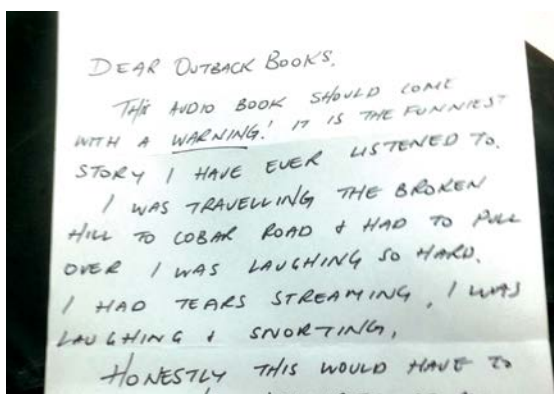 DEAR OUTBACK BOOKS.
THIS AUDIO BOOK SHOULD COME
WITH A WARNING! IT IS THE FUNNIEST
STORY I HAVE EVER LISTENED TO.
I WAS TRAVELLING THE BROKEN
HILL TO COBAR ROAD & HAD TO PULL
OVER I WAS LAUGHING SO HARD.
I HAD TEARS STREAMING, I WAS
LAUGHING & SNORTING,
HONESTLY THIS WOULD HAVE TO